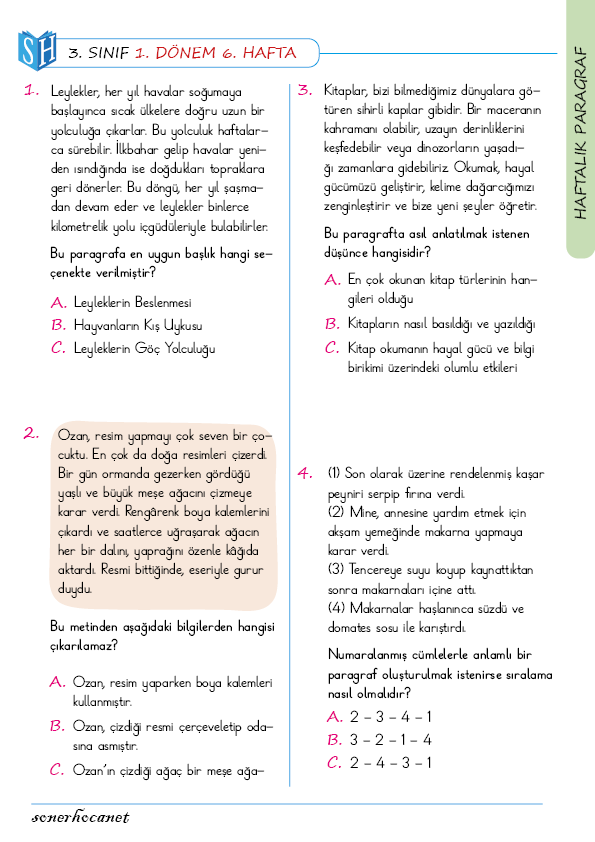 SH
3. SINIF 1. DÖNEM 6. HAFTA
HAFTALIK PARAGRAF
1. Leylekler, her yıl havalar soğumaya
başlayınca sıcak ülkelere doğru uzun bir
yolculuğa çıkarlar. Bu yolculuk haftalar-
ca sürebilir. İlkbahar gelip havalar yeni-
den ısındığında ise doğdukları topraklara
geri dönerler. Bu döngü, her yıl şaşma-
dan devam eder ve leylekler binlerce
kilometrelik yolu içgüdüleriyle bulabilirler.
Bu paragrafa en uygun başlık hangi se-
çenekte verilmiştir?
A. Leyleklerin Beslenmesi
B. Hayvanların Kış Uykusu
C. Leyleklerin Göç Yolculuğu
2. Ozan, resim yapmayı çok seven bir ço-
cuktu. En çok da doğa resimleri çizerdi.
Bir gün ormanda gezerken gördüğü
yaşlı ve büyük meşe ağacını çizmeye
karar verdi. Rengârenk boya kalemlerini
çıkardı ve saatlerce uğraşarak ağacın
her bir dalını, yaprağını özenle kâğıda
aktardı. Resmi bittiğinde, eseriyle gurur
duydu.
Bu metinden aşağıdaki bilgilerden hangisi
çıkarılamaz?
A. Ozan, resim yaparken boya kalemleri
kullanmıştır.
B. Ozan, çizdiği resmi çerçeveletip oda-
sına asmıştır.
C. Ozan'ın çizdiği ağaç bir meşe ağa-
3. Kitaplar, bizi bilmediğimiz dünyalara gö-
türen sihirli kapılar gibidir. Bir maceranın
kahramanı olabilir, uzayın derinliklerini
keşfedebilir veya dinozorların yaşadı-
ğı zamanlara gidebiliriz. Okumak, hayal
gücümüzü geliştirir, kelime dağarcığımızı
zenginleştirir ve bize yeni şeyler öğretir.
Bu paragrafta asıl anlatılmak istenen
düşünce hangisidir?
A. En çok okunan kitap türlerinin han-
gileri olduğu
B. Kitapların nasıl basıldığı ve yazıldığı
C. Kitap okumanın hayal gücü ve bilgi
birikimi üzerindeki olumlu etkileri
4. (1) Son olarak üzerine rendelenmiş kaşar
peyniri serpip fırına verdi.
(2) Mine, annesine yardım etmek için
akşam yemeğinde makarna yapmaya
karar verdi.
(3) Tencereye suyu koyup kaynattıktan
sonra makarnaları içine attı.
(4) Makarnalar haşlanınca süzdü ve
domates sosu ile karıştırdı.
Numaralanmış cümlelerle anlamlı bir
paragraf oluşturulmak istenirse sıralama
nasıl olmalıdır?
A. 2 – 3 – 4 – 1
B. 3 – 2 – 1 – 4
C. 2 – 4 – 3 – 1
sonerhocanet